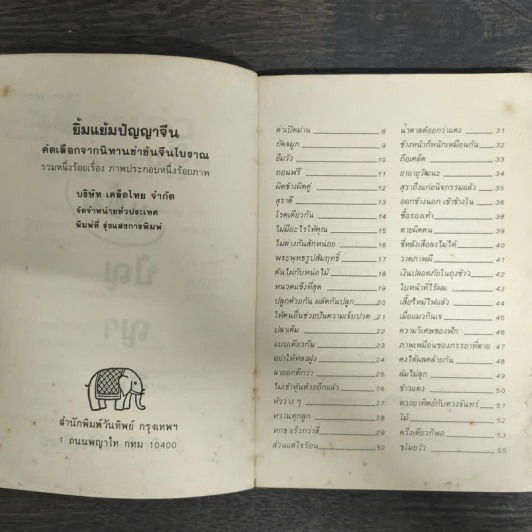 ยิ้มแย้มปัญญาจีน
คัดเลือกจากนิทานขำขันจีนโบราณ
รวมหนึ่งร้อยเรื่อง ภาพประกอบหนึ่งร้อยภาพ
บริษัท เคล็ดไทย จำกัด
จัดจำหน่ายทั่วประเทศ
พิมพ์ที่ รุ่งแสงการพิมพ์
สำนักพิมพ์วันทิพย์ กรุงเทพฯ
1 ถนนพญาไท กทม 10400
ค่าเปิดม่าน 6
กัดจมูก 8
ยืมวัว 9
ถอนฟรี 10
ผิดข้างผิดคู่ 11
สุราดี 12
โรคเดียวกัน 13
ไม่มีอะไรให้คุณ 14
ไม่ต่างกันสักหน่อย 16
พระพุทธรูปสัมฤทธิ์ 17
ต้นไม้กับหน่อไม้ 18
หนวดแข็งที่สุด 19
ปลูกด้วยกัน ผลัดกันปลูก 20
ให้คนอื่นช่วยปันความเจ็บปวด 21
ปลาเค็ม 22
แบบเดียวกัน 23
อย่าให้หลงฝูง 24
ลาออกดีกว่า 25
ไม่เข้าหุ้นด้วยอีกแล้ว 26
หัวว่าง ๆ 27
หวานทุกลูก 28
ทกขาเร็วกว่าสี่ 29
ล้วนแต่ใจร้อน 30
น้ำตาลด้อยกว่าแตง 31
ข้างหน้าก็หนักเหมือนกัน 32
ถือเคล็ด 33
ยาอายุวัฒนะ 34
สุราถึงแก่อนิจกรรมแล้ว 35
ออกข้างนอก เข้าข้างใน 36
ซื้อรองเท้า 38
ตายผิดคน 39
ขี่หลังเสือลงไม่ได้ 40
วาดภาพผี 41
เงินปลอดภัยในถุงข้าว 42
ใบหน้าที่ไร้ผม 43
เสื้อใหม่ไฟแล้ว 44
เมื่อแมวกินเจ 45
ความวิเศษของฟัก 46
ภาพเหมือนของภรรยาที่ตาย 47
คงได้ผลคล้ายกัน 48
ล้มไม่ลุก 49
ข้าวแดง 50
ดวงอาทิตย์กับดวงจันทร์ 51
โม้ 52
ครึ่งเดียวก็พอ 53
ขโมยวัว 55